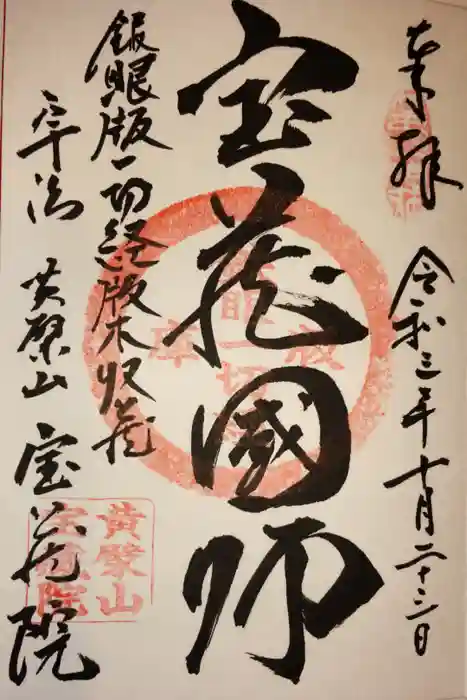 奉拝
令和三年十月二十三日
宝蔵國師
鉄眼版一切経版木収蔵
宇治 黄檗山 宝蔵院
黄檗山
宝蔵院